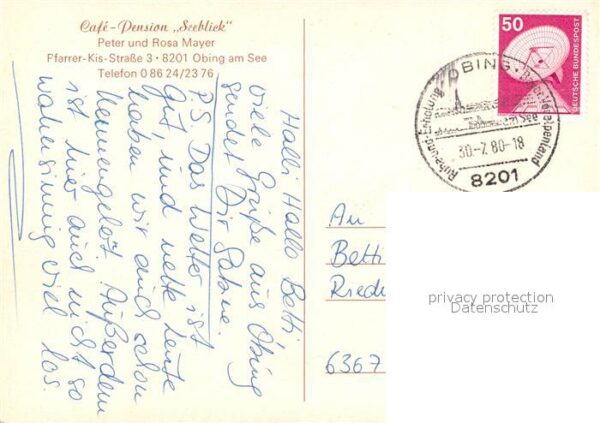 Café-Pension „Seeblick"
Peter und Rosa Mayer
Pfarrer-Kis-Straße 3 · 8201 Obing am See
Telefon 0 86 24/23 76
Halli Hallo Betti
viele Grüße aus Obing
sendet Dir Sabine.
P.S. Das Wetter ist
gut, und nette Leute
haben wir auch schon
kennengelernt. Außerdem
ist hier auch nicht so
wahnsinnig viel los.
50
DEUTSCHE BUNDESPOST
OBING
Ruhe-und-Erholung
am See
30.-7.80-18
8201
An
Betti
Riede
6367
privacy protection
Datenschutz